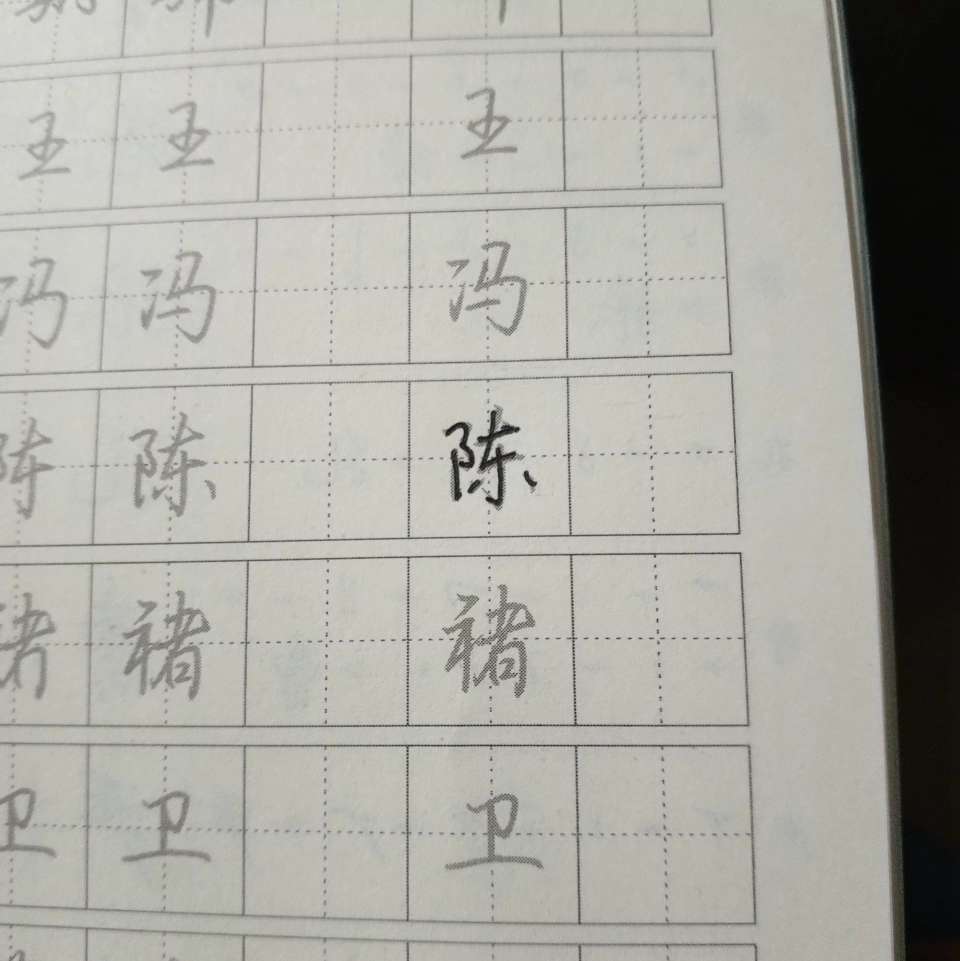 王 王 王
冯 冯 冯
陈 陈 陈
褚 褚 褚
卫 卫 卫